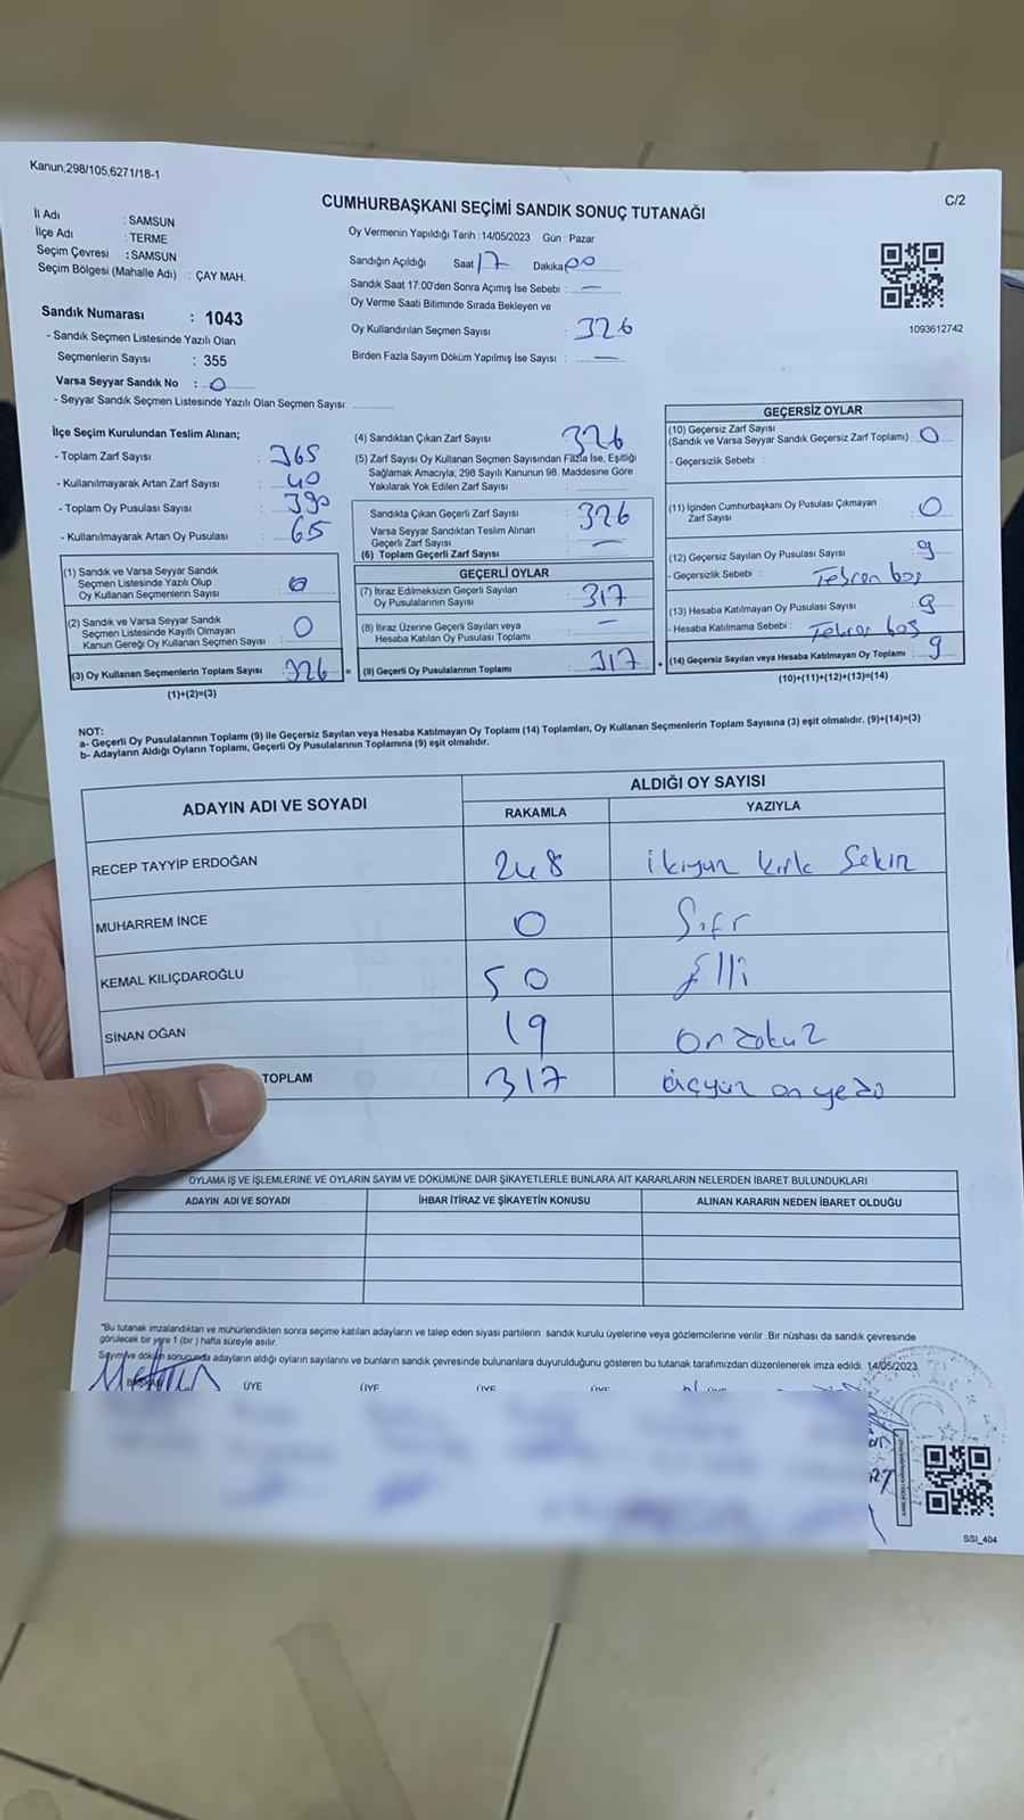 Kanun,298/105,6271/18-1
C/2
CUMHURBAŞKANI SEÇİMİ SANDIK SONUÇ TUTANAĞI
İl Adı : SAMSUN
İlçe Adı : TERME
Seçim Çevresi : SAMSUN
Seçim Bölgesi (Mahalle Adı) : ÇAY MAH.
Sandık Numarası : 1043
- Sandık Seçmen Listesinde Yazılı Olan
Seçmenlerin Sayısı : 355
Varsa Seyyar Sandık No : 0
- Seyyar Sandık Seçmen Listesinde Yazılı Olan Seçmen Sayısı
Oy Vermenin Yapıldığı Tarih : 14/05/2023 Gün : Pazar
Sandığın Açıldığı Saat 17 Dakika 00
Sandık Saat 17:00'den Sonra Açımış İse Sebebi : —
Oy Verme Saati Bitiminde Sırada Bekleyen ve
Oy Kullandırılan Seçmen Sayısı : 326
Birden Fazla Sayım Döküm Yapılmış İse Sayısı : —
1093612742
İlçe Seçim Kurulundan Teslim Alınan;
- Toplam Zarf Sayısı : 365
- Kullanılmayarak Artan Zarf Sayısı : 40
- Toplam Oy Pusulası Sayısı : 390
- Kullanılmayarak Artan Oy Pusulası : 65
(1) Sandık ve Varsa Seyyar Sandık
Seçmen Listesinde Yazılı Olup
Oy Kullanan Seçmenlerin Sayısı
(2) Sandık ve Varsa Seyyar Sandık
Seçmen Listesinde Kayıtlı Olmayan
Kanun Gereği Oy Kullanan Seçmen Sayısı : 0
(3) Oy Kullanan Seçmenlerin Toplam Sayısı : 326 =
(1)+(2)=(3)
(4) Sandıktan Çıkan Zarf Sayısı 326
(5) Zarf Sayısı Oy Kullanan Seçmen Sayısından Fazla İse, Eşitliği
Sağlamak Amacıyla, 298 Sayılı Kanunun 98. Maddesine Göre
Yakılarak Yok Edilen Zarf Sayısı
Sandıkta Çıkan Geçerli Zarf Sayısı : 326
Varsa Seyyar Sandıktan Teslim Alınan
Geçerli Zarf Sayısı : —
(6) Toplam Geçerli Zarf Sayısı
GEÇERLİ OYLAR
(7) İtiraz Edilmeksizin Geçerli Sayılan
Oy Pusulalarının Sayısı : 317
(8) İtiraz Üzerine Geçerli Sayılan veya
Hesaba Katılan Oy Pusulası Toplamı : —
(9) Geçerli Oy Pusulalarının Toplamı : 317 +
GEÇERSİZ OYLAR
(10) Geçersiz Zarf Sayısı
(Sandık ve Varsa Seyyar Sandık Geçersiz Zarf Toplamı) : 0
- Geçersizlik Sebebi :
(11) İçinden Cumhurbaşkanı Oy Pusulası Çıkmayan
Zarf Sayısı : 0
(12) Geçersiz Sayılan Oy Pusulası Sayısı : 9
- Geçersizlik Sebebi : boş
(13) Hesaba Katılmayan Oy Pusulası Sayısı : 9
- Hesaba Katılmama Sebebi : boş
(14) Geçersiz Sayılan veya Hesaba Katılmayan Oy Toplamı : 9
(10)+(11)+(12)+(13)=(14)
NOT:
a- Geçerli Oy Pusulalarının Toplamı (9) ile Geçersiz Sayılan veya Hesaba Katılmayan Oy Toplamı (14) Toplamları, Oy Kullanan Seçmenlerin Toplam Sayısına (3) eşit olmalıdır. (9)+(14)=(3)
b- Adayların Aldığı Oyların Toplamı, Geçerli Oy Pusulalarının Toplamına (9) eşit olmalıdır.
ADAYIN ADI VE SOYADI ALDIĞI OY SAYISI
RAKAMLA YAZIYLA
RECEP TAYYİP ERDOĞAN 248 ikiyüz kırk sekiz
MUHARREM İNCE 0 Sıfır
KEMAL KILIÇDAROĞLU 50 Elli
SİNAN OĞAN 19 on dokuz
TOPLAM 317 üçyüz on yedi
OYLAMA İŞ VE İŞLEMLERİNE VE OYLARIN SAYIM VE DÖKÜMÜNE DAİR ŞİKAYETLERLE BUNLARA AİT KARARLARIN NELERDEN İBARET BULUNDUKLARI
ADAYIN ADI VE SOYADI İHBAR İTİRAZ VE ŞİKAYETİN KONUSU ALINAN KARARIN NEDEN İBARET OLDUĞU
*Bu tutanak imzalandıktan ve mühürlendikten sonra seçime katılan adayların ve talep eden siyasi partilerin sandık kurulu üyelerine veya gözlemcilerine verilir. Bir nüshası da sandık çevresinde
görülecek bir yere 1 (bir) hafta süreyle asılır.
Sayım ve döküm sonucunda adayların aldığı oyların sayılarını ve bunların sandık çevresinde bulunanlara duyurulduğunu gösteren bu tutanak tarafımızdan düzenlenerek imza edildi. 14/05/2023
ÜYE ÜYE ÜYE ÜYE
SSI_404